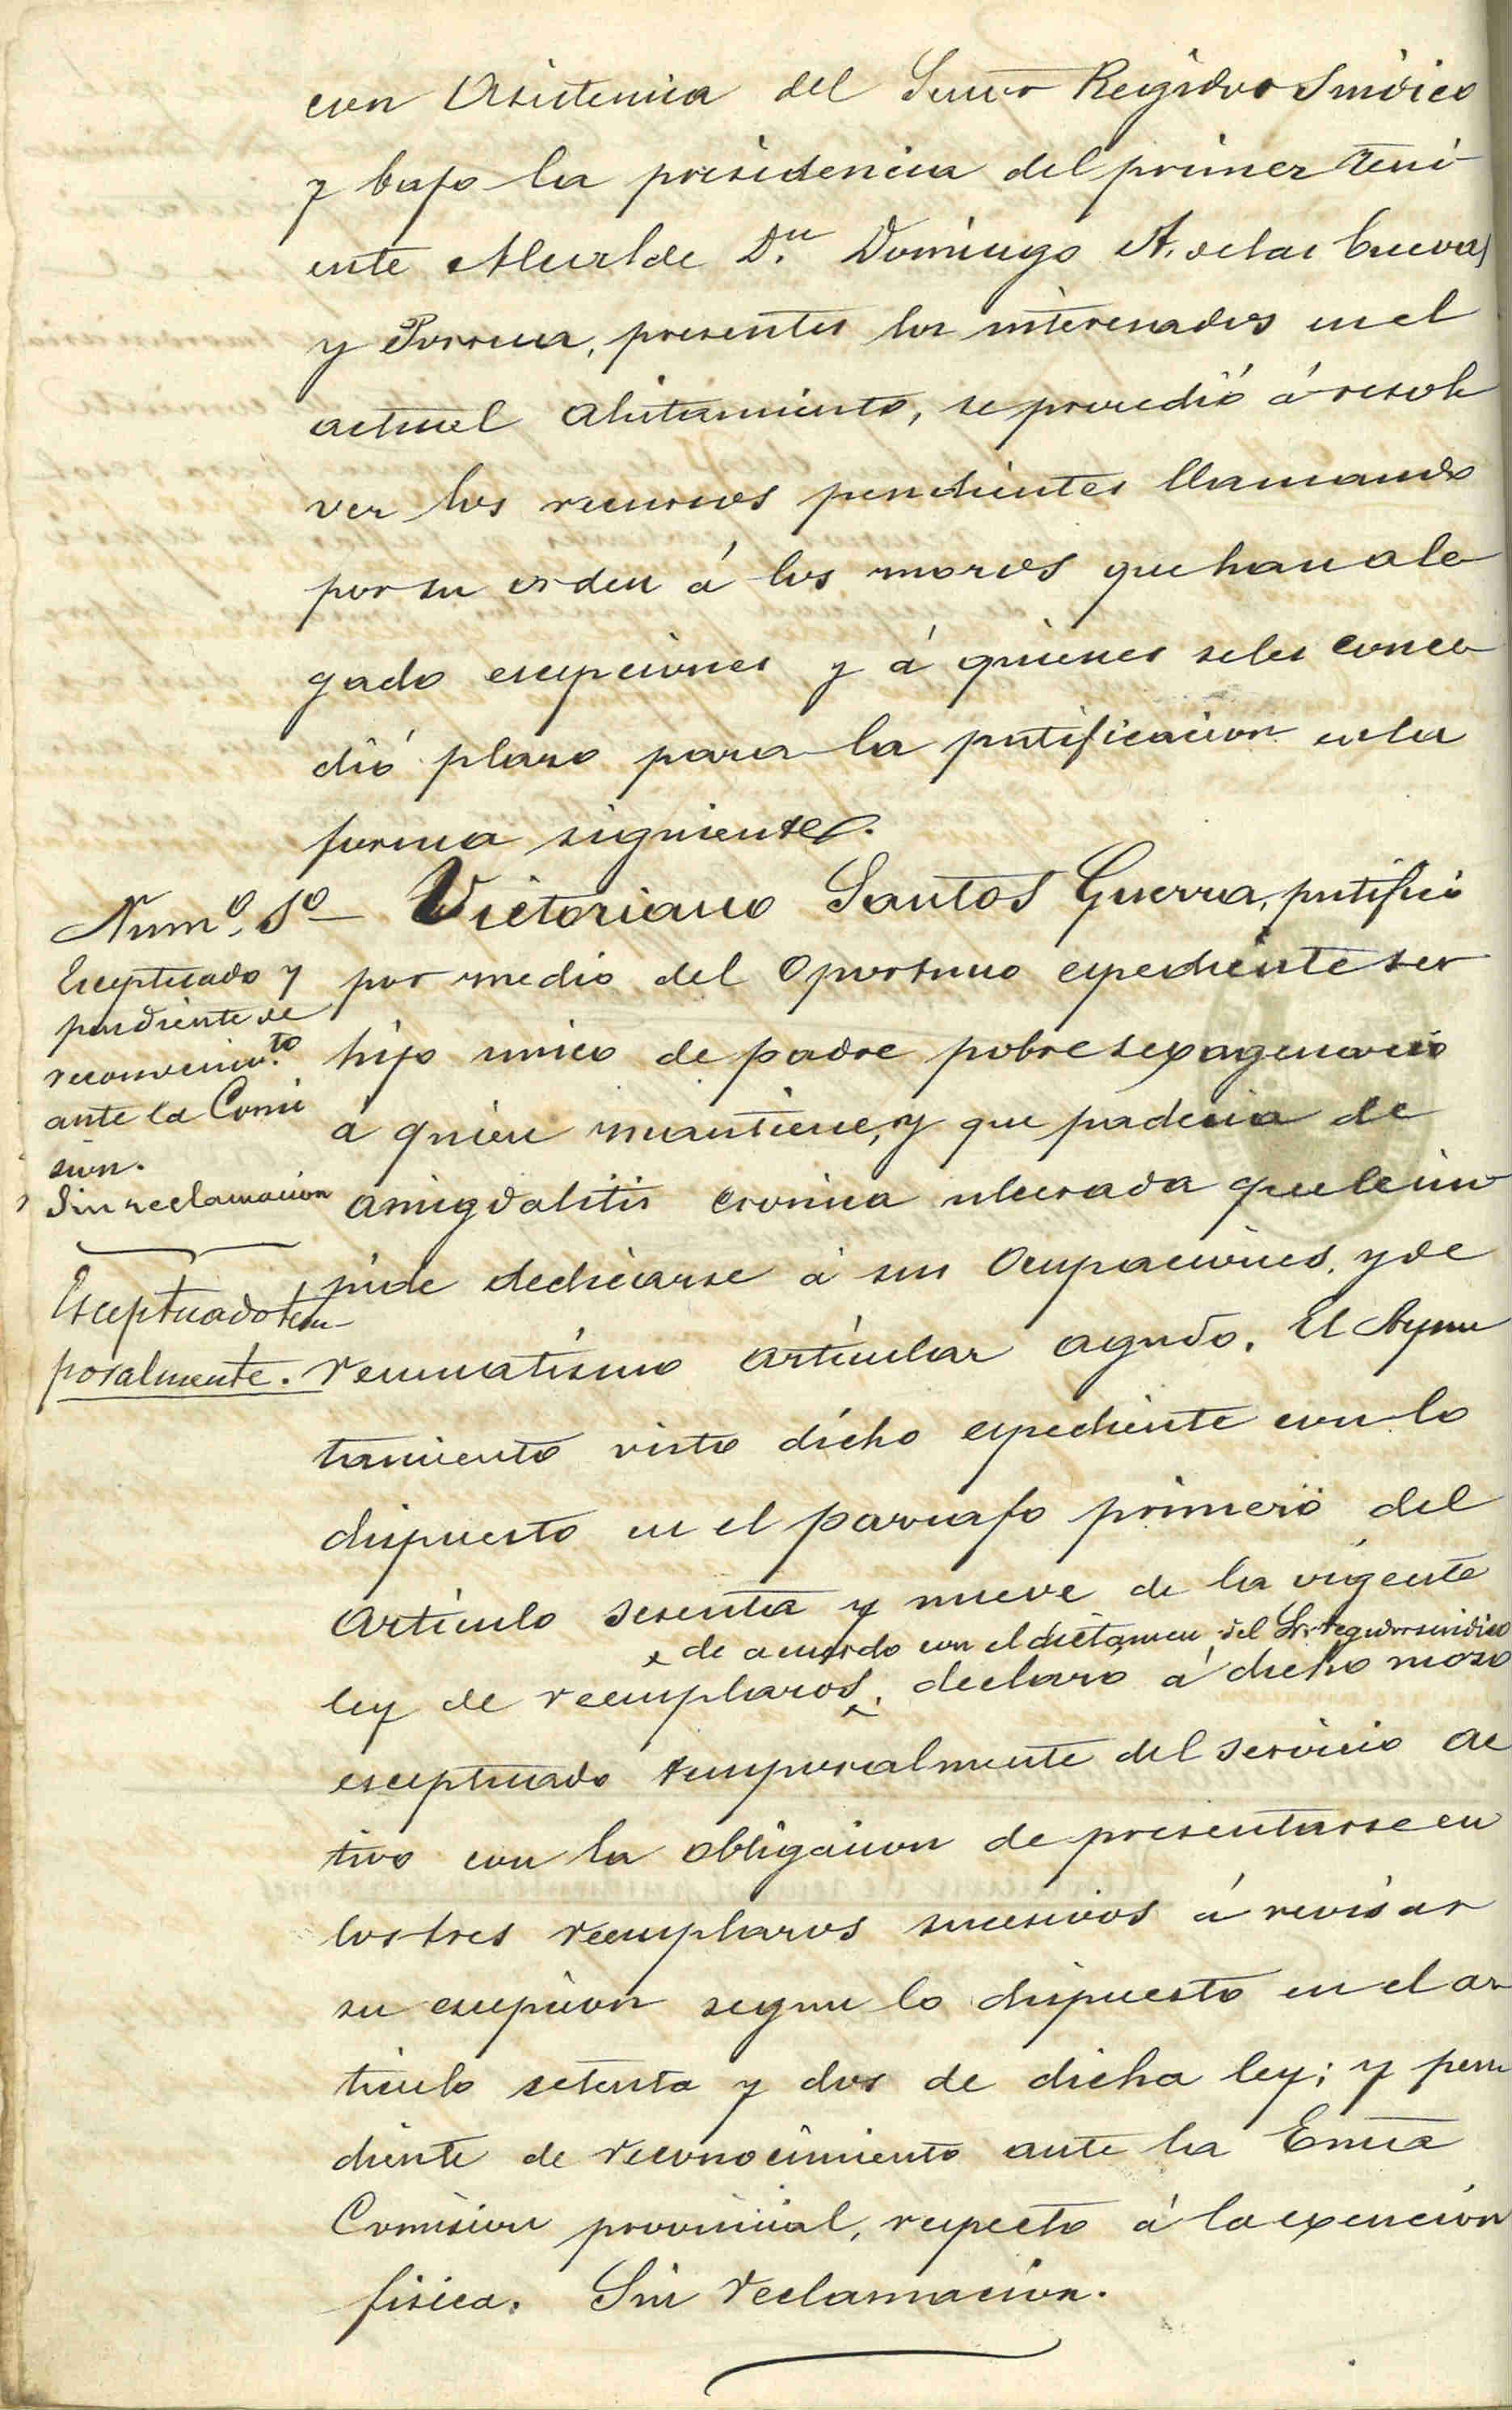 con Asistencia del Señor Regidor Sindico
y bajo la presidencia del primer teni
ente Alcalde D.n Domingo A. de las Cuevas
y Porrua, presentes los interesados en el
actual alistamiento, se procedió á resol
ver los recursos pendientes llamando
por su orden á los mozos que han ale
gado escepciones y á quienes seles conce
dió plazo para la justificacion en la
forma siguiente.
Num.º 1º Victoriano Santos Guerra, justificó
por medio del Oportuno espediente ser
hijo unico de padre pobre sexagenario
á quien mantiene, y que padecia de
amigdalitis cronica ulcerada que le im
pide dedicarse á sus Ocupaciones, y de
reumatismo articular agudo. El Ayun
tamiento visto dicho espediente con lo
dispuesto en el parrafo primero del
Articulo sesenta y nueve de la vigente
de acuerdo con el dictamen del Sr. Regidor sindico
ley de reemplazos, declaró á dicho mozo
esceptuado temporalmente del servicio ac
tivo con la obligacion de presentarse en
los tres reemplazos sucesivos á revisar
su escepcion segun lo dispuesto en el ar
ticulo setenta y dos de dicha ley; y pen
diente de reconocimiento ante la Exma
Comision provincial, respecto á la exencion
fisica. Sin reclamacion.
Esceptuado y
pendiente de
reconocimto
ante la Comi
sion.
Sin reclamacion
Esceptuado tem
poralmente.